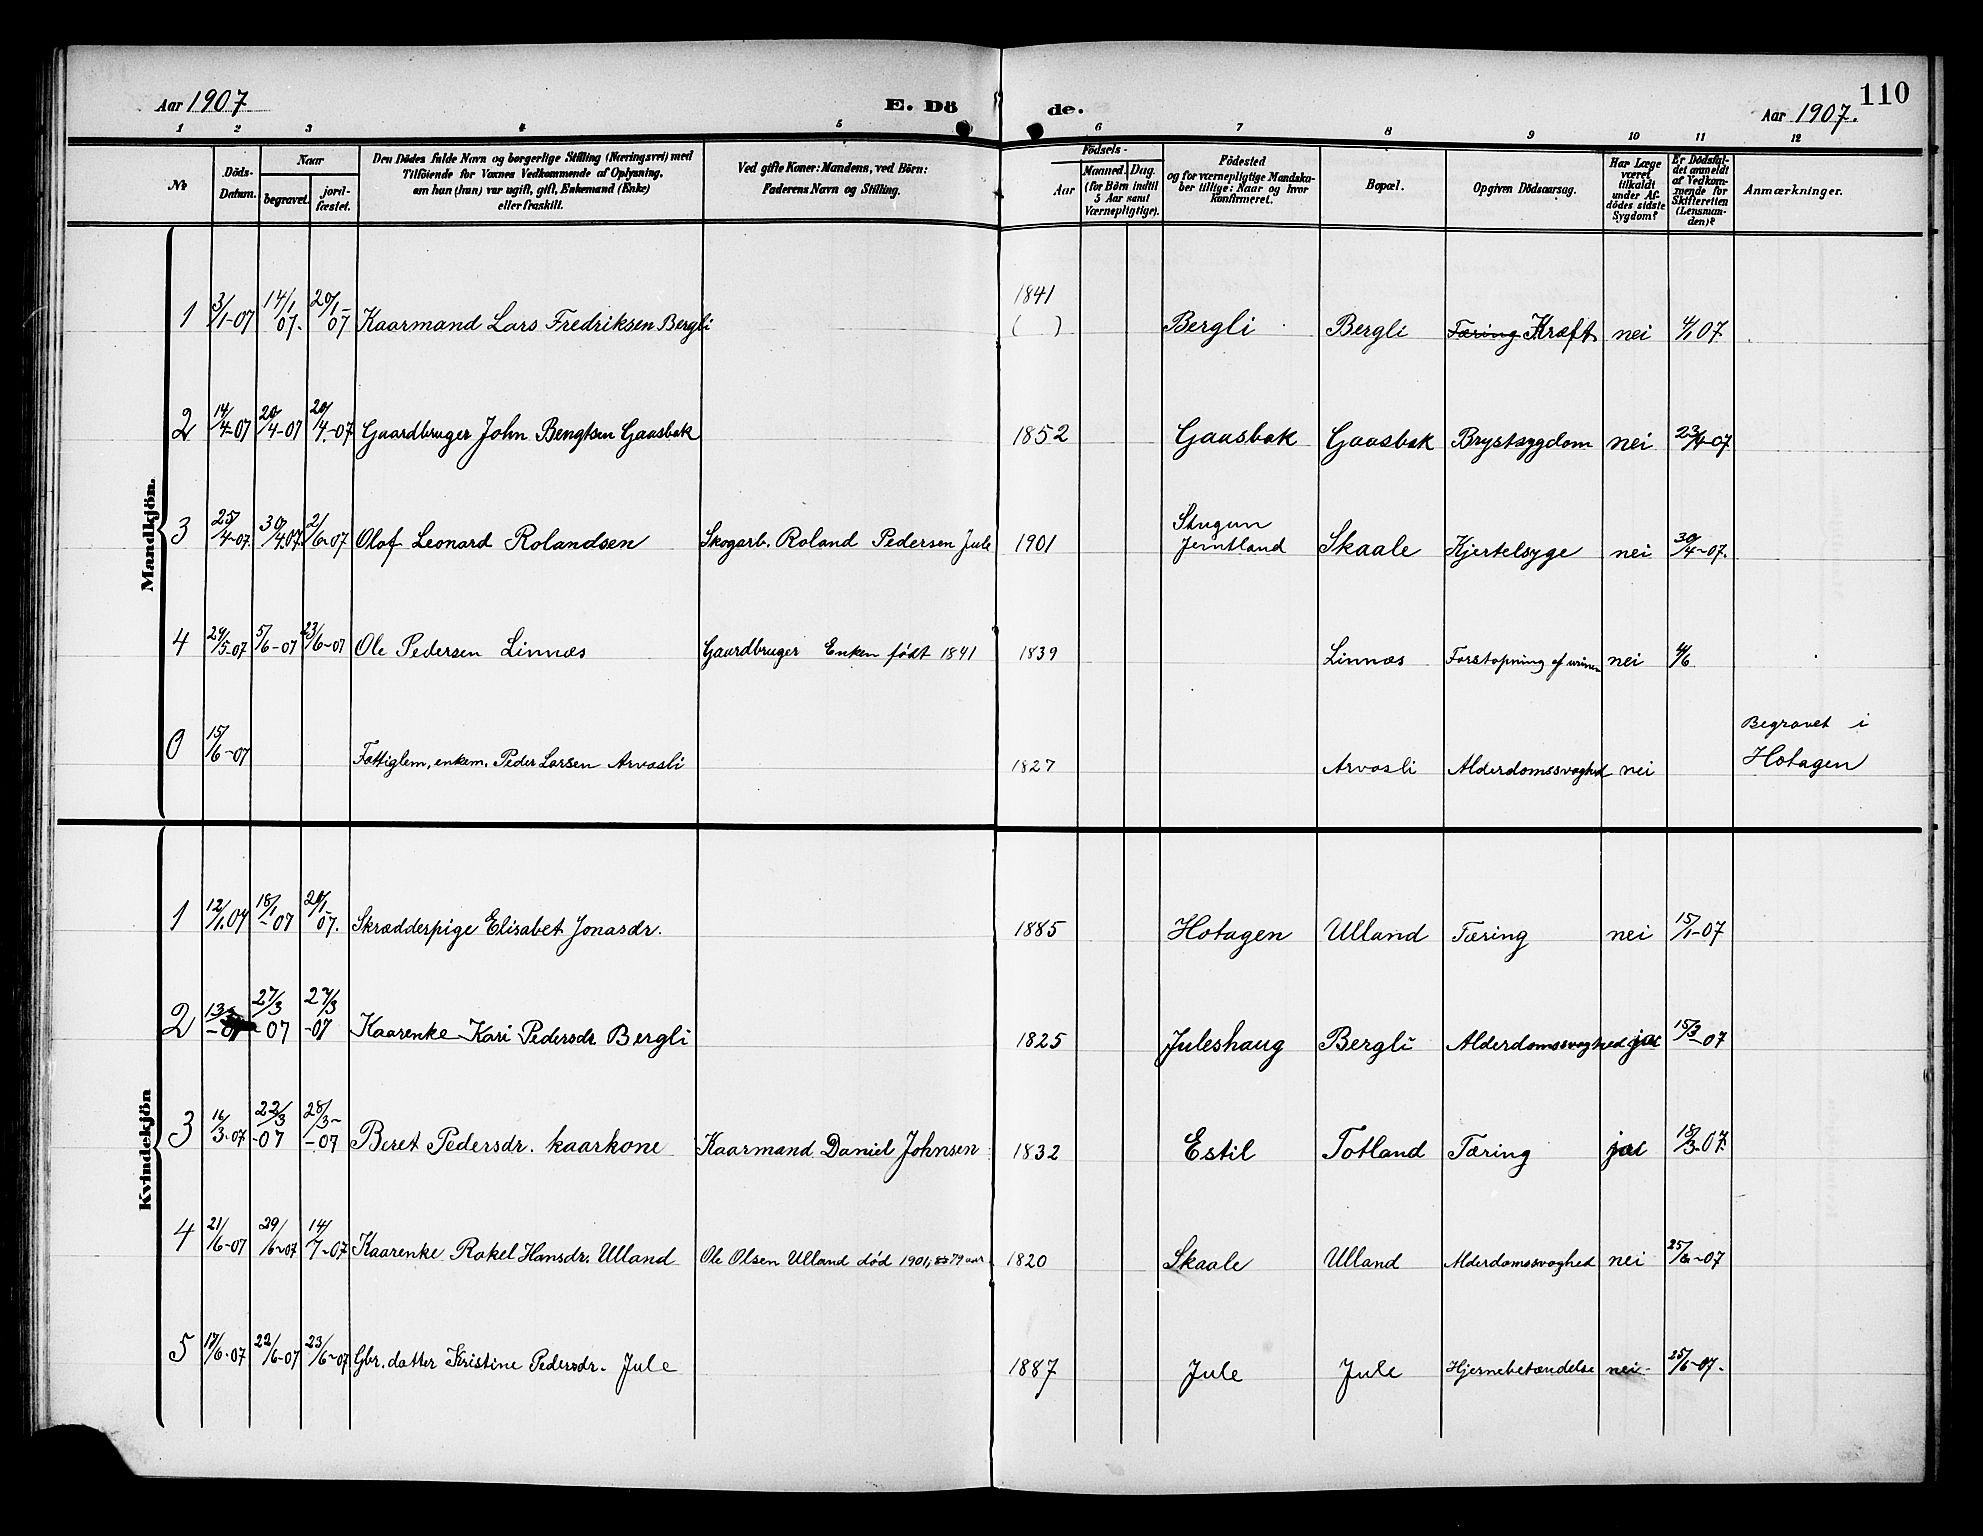 Aar 1907
E. Dö
de.
Aar 1907.
110
1 2 3 4 5 6 7 8 9 10 11 12
No
Döds-
Datum.
Naar
begravet.
jord-
fæstet.
Den Dödes fulde Navn og borgerlige Stilling (Næringsvei) med
Tilföiende for Voxnes Vedkommende af Oplysning,
om han (hun) var ugift, gift, Enkemand (Enke)
eller fraskilt.
Ved gifte Koner: Mandens, ved Börn:
Faderens Navn og Stilling.
Födsels-
Aar
Maaned. Dag.
(for Börn indtil
5 Aar samt
Værnepligtige).
Födested
og for værnepligtige Mandska-
ber tillige: Naar og hvor
konfirmeret.
Bopæl.
Opgiven Dödsaarsag.
Har Læge
været
tilkaldt
under Af-
dödes sidste
Sygdom?
Er Dödsfal-
det anmeldt
af Vedkom-
mende for
Skifteretten
(Lensman-
den)?
Anmærkninger.
Mandkjön.
1 3/1-07 14/1 07. 20/1- 07 Kaarmand Lars Fredriksen Bergli 1841 ( ) Bergli Bergli Tæring Kræft nei 4/1 07.
2 14/4-07 20/4-07 20/4-07 Gaardbruger John Bengtsen Gaasbak 1852 Gaasbak Gaasbak Brystsygdom nei 23/4-07
3 25/4-07 30/4 07 2/6-07 Olof Leonard Rolandsen Skogarb. Roland Pedersen Jule 1901 Stugun Jemtland Skaale Kjertelsyge nei 30/4-07.
4 29/5-07 5/6-07 23/6-07 Ole Pedersen Linnæs Gaardbruger Enken født 1841 1839 Linnæs Forstopning af urinen nei 4/6
0 15/6-07 Fattiglem, enkem. Peder Larsen Arvasli 1827 Arvasli Alderdomssvaghed nei Begravet i Hotagen
Kvindekjön
1 12/1.07 18/1-07 20/1-07. Skrædderpige Elisabet Jonasdr. 1885 Hotagen Ulland Tæring nei 15/1-07
2 13/3-07 27/3-07 27/3-07 Kaarenke Kari Pedersdr Bergli 1825 Juleshaug Bergli Alderdomssvaghed ja 15/3-07
3 16/3-07 22/3-07 28/3-07 Beret Pedersdr. kaarkone Kaarmand Daniel Johnsen 1832 Estil Totland Tæring ja 18/3-07.
4 21/6-07 29/6-07 14/7-07 Kaarenke Rakel Hansdr. Ulland Ole Olsen Ulland død 1901, 79 aar 1820 Skaale Ulland Alderdomssvaghed nei 25/6-07
5 17/6-07 22/6-07 23/6-07 Gbr. datter Kristine Pedersdr. Jule 1887 Jule Jule Hjernebetændelse nei 25/6-07.